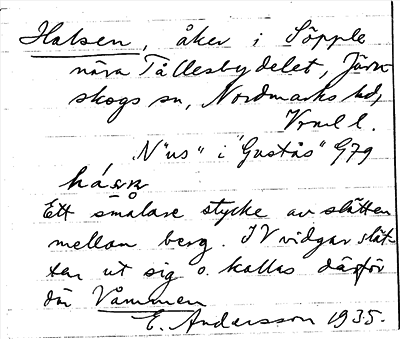 Halsen, åker i Söpple
nära Tållesbydelet, Järn-
skogs sn, Nordmarks hd,
Vrml l.
N "us" i "Gustås" 979
Ett smalare stycke av slätten
mellan berg. I V vidgar slät-
ten ut sig o. kallas därför
där Våmmen
E. Andersson 1935.